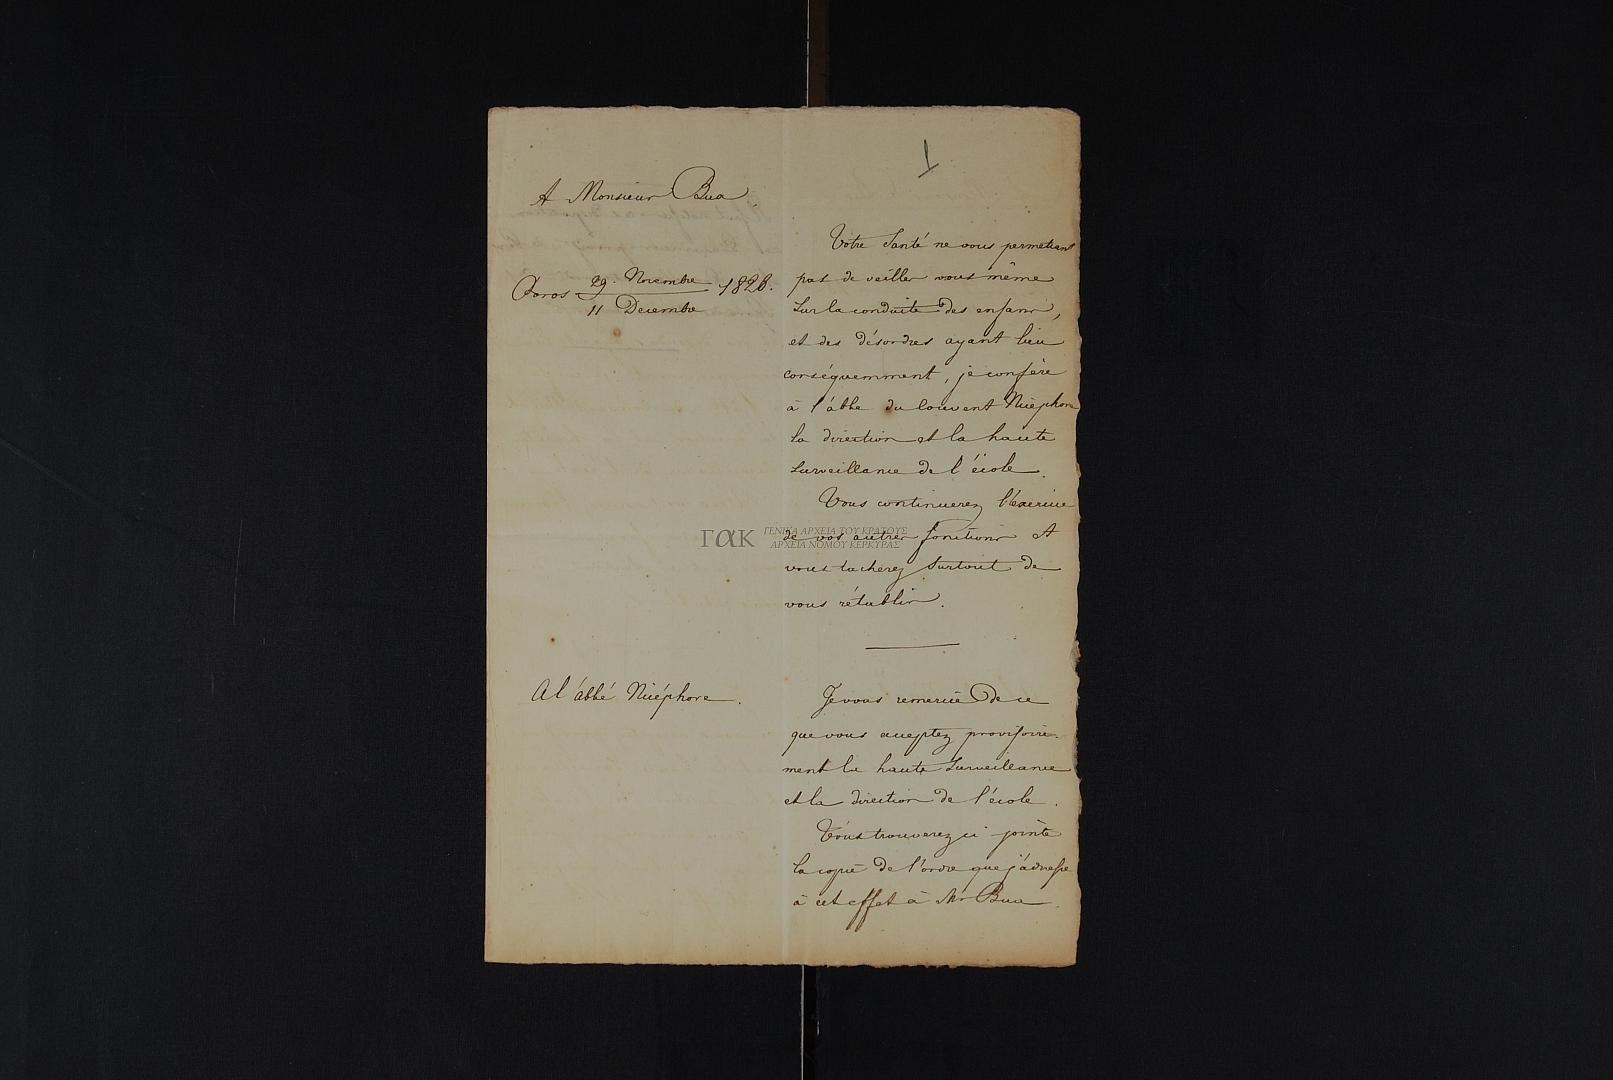 1
A Monsieur Bua
Poros 29 Novembre 1828.
11 Decembre
Votre Santé ne vous permettant
pas de veiller vous même
Sur la conduite des enfans,
et des désordres ayant lieu
conséquemment, je confère
à l'abbé du Couvent Nicéphore
la direction et la haute
Surveillance de l'école.
Vous continuerez l'éxercice
de vos autres fonctions et
vous tacherez Surtout de
vous rétablir.
A l'abbé Nicéphore.
Je vous remercie de ce
que vous acceptez provisoire-
ment la haute Surveillance
et la direction de l'école.
Vous trouverez ci jointe
la copie de l'ordre que j'adresse
à cet effet à Mr Bua.
ΓΑΚ ΓΕΝΙΚΑ ΑΡΧΕΙΑ ΤΟΥ ΚΡΑΤΟΥΣ
ΑΡΧΕΙΑ ΝΟΜΟΥ ΚΕΡΚΥΡΑΣ